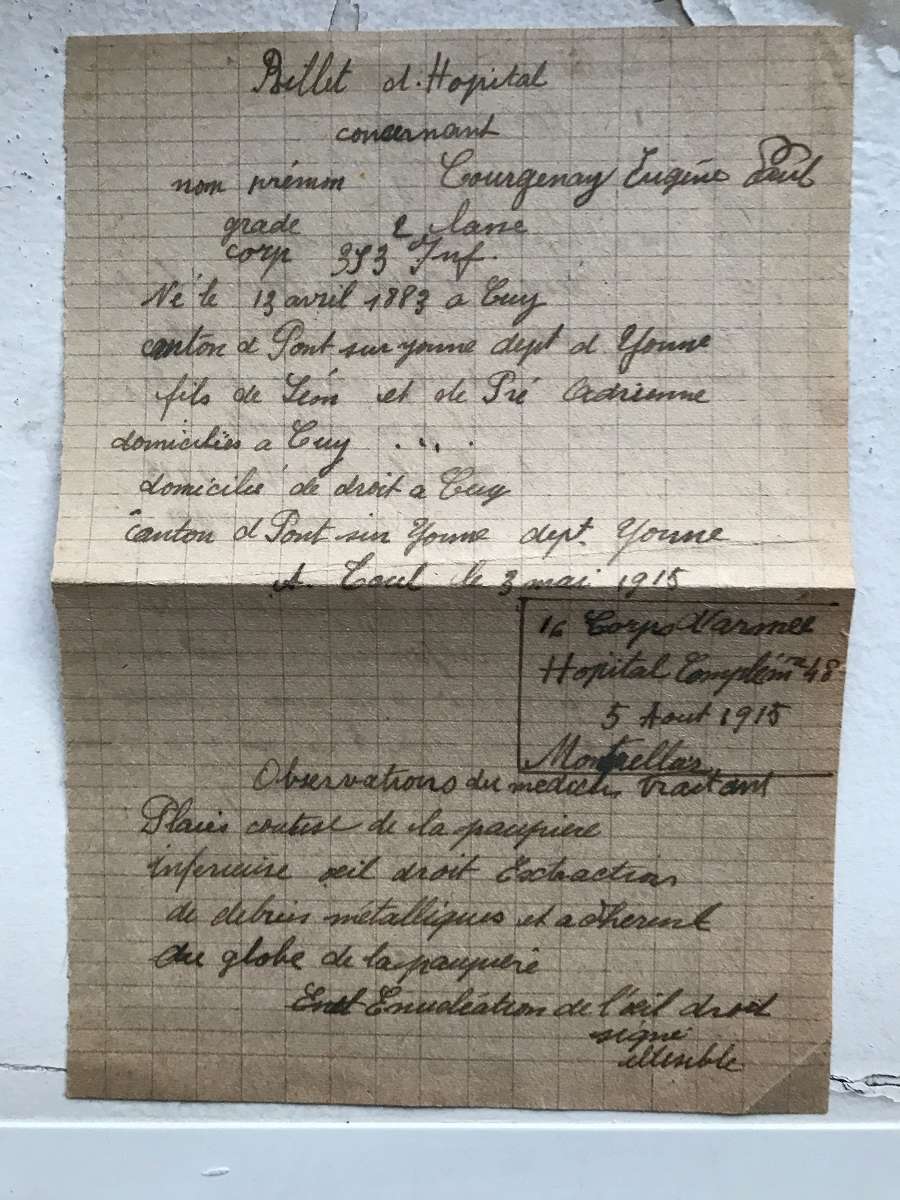 Billet d. Hopital
concernant
nom prémon Courgenay Eugène Paul
grade 2 lasse
corp 353 Inf.
Né le 13 avril 1883 a Cuy
canton d Pont sur yonne dept d. Yonne
fils de Léon et de Pré Adrienne
domiciliés a Cuy
domicilié de droit a Cuy
canton d Pont sur Yonne dept. Yonne
A. Toul le 3 mai 1915
16 Corps d'armée
Hopital Complémre 48
5 Aout 1915
Montpellier
Observations du medecin traitant
Plaies contuse de la paupiere
inferieure œil droit Extractions
de debries métalliques et adherent
du globe de la paupière
Enucléation de l'œil droit
signé